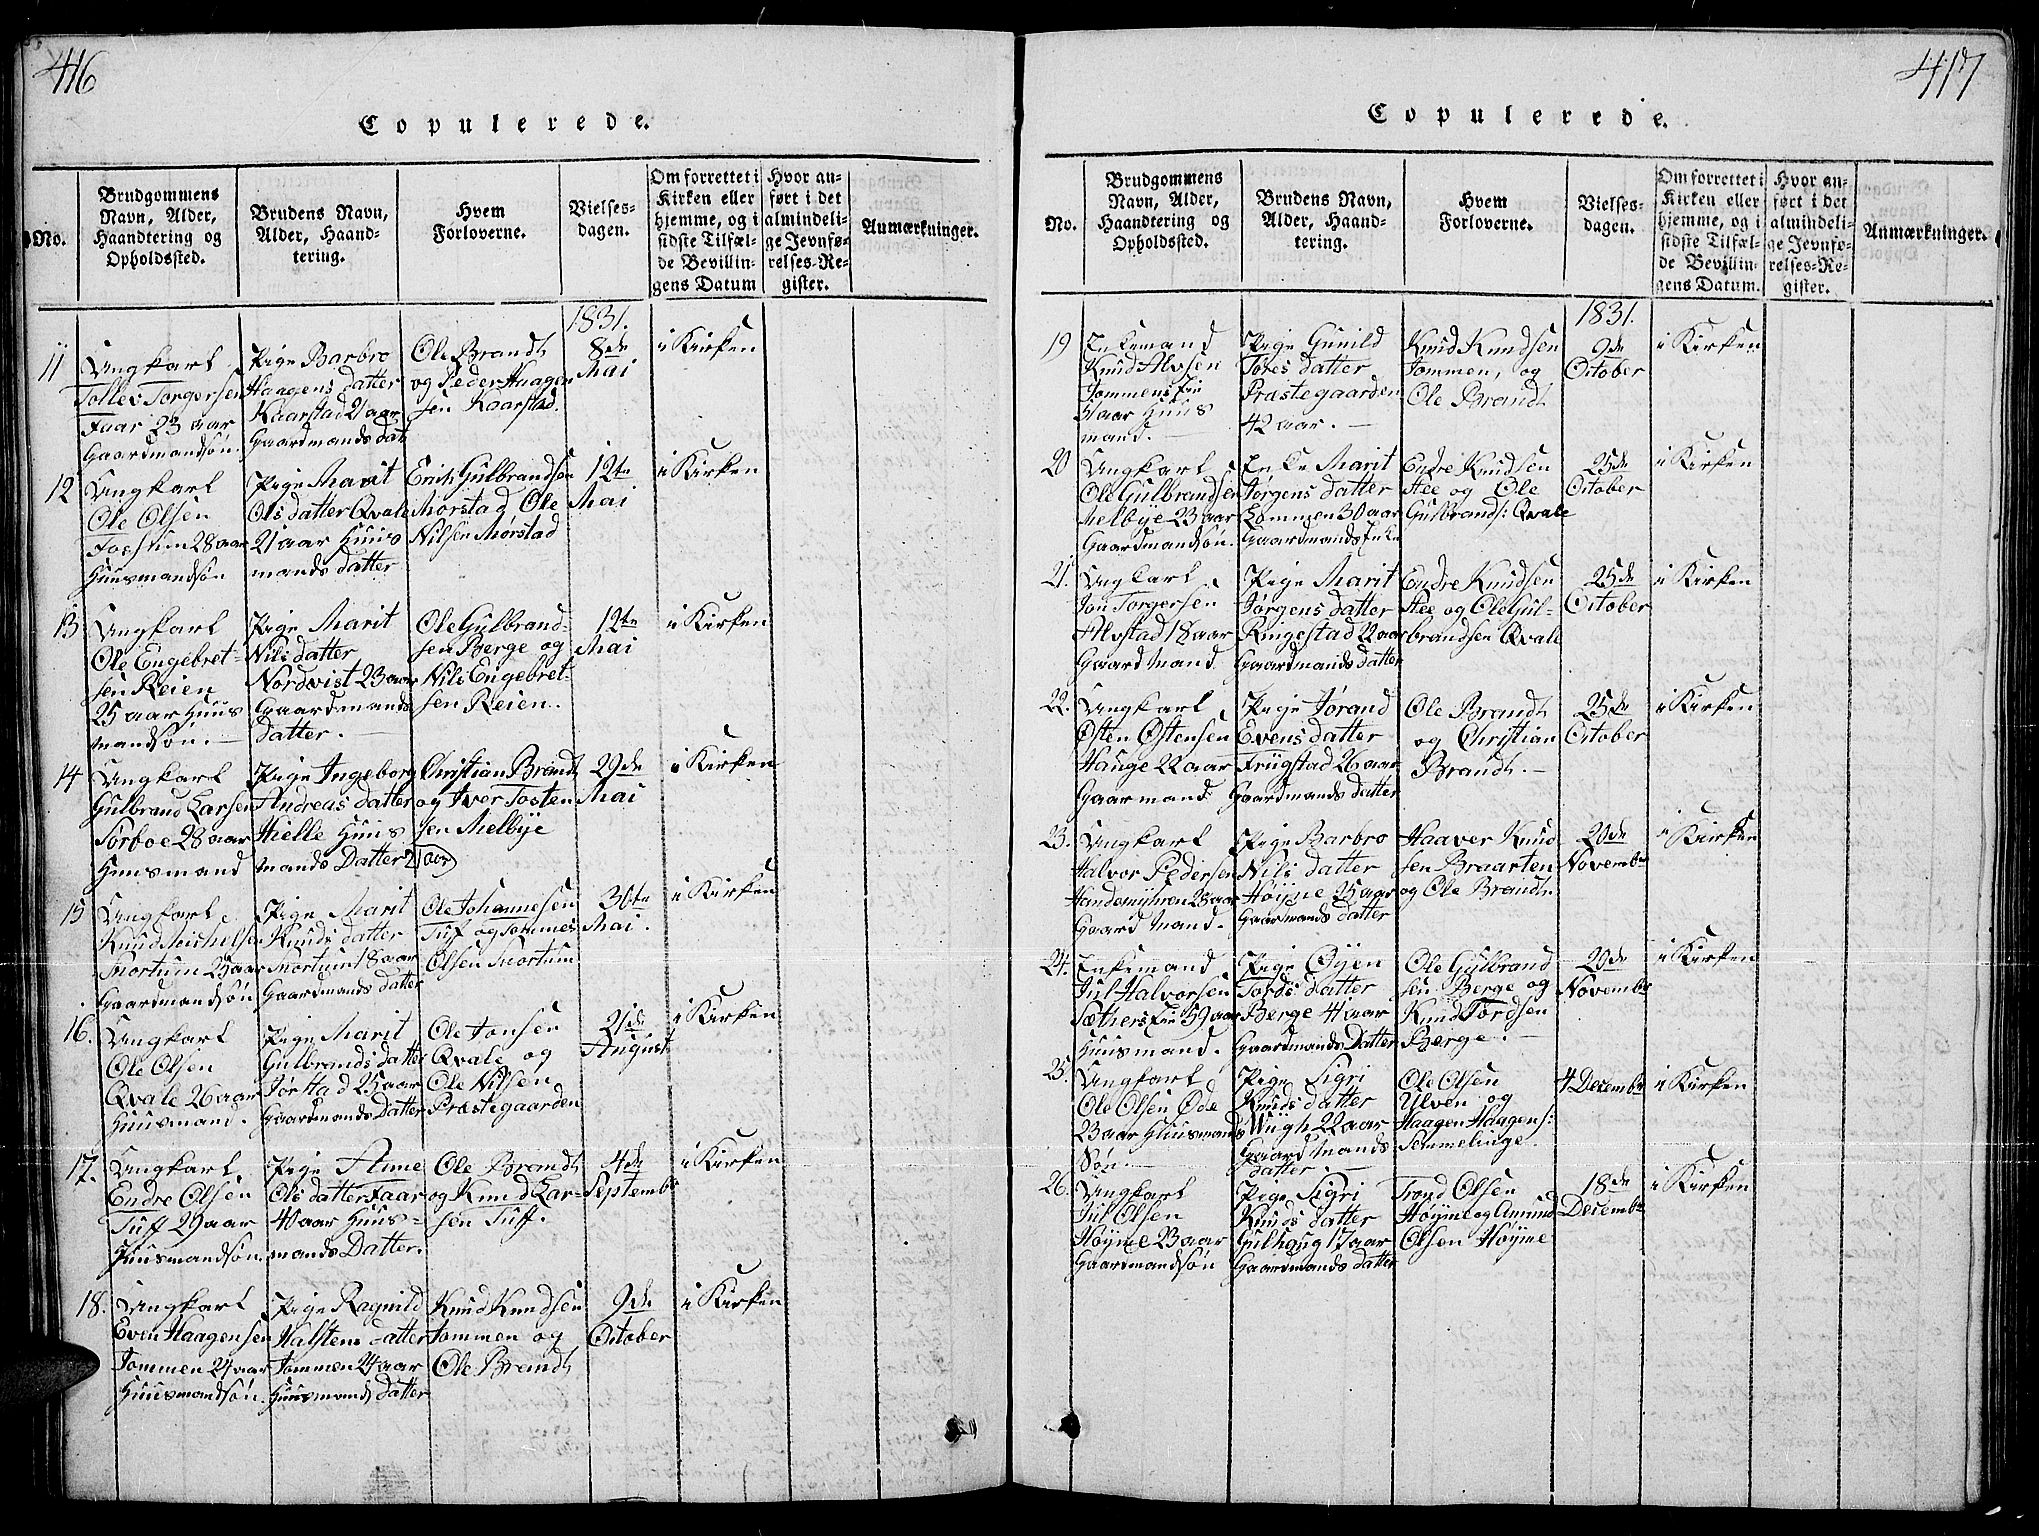 416
Copulerede.
No.
Brudgommens
Navn, Alder,
Haandtering og
Opholdssted.
Brudens Navn,
Alder, Haand-
tering.
Hvem
Forloverne.
Vielses-
dagen.
Om forrettet i
Kirken eller
hjemme, og i
sidste Tilfæl-
de Bevillin-
gens Datum
Hvor an-
ført i det
almindeli-
ge Jevnfø-
relses-Re-
gister.
Anmærkninger.
1831.
11
Ungkarl
Tollev Torgersen
Faar 23 aar
Gaardmandsøn.
Pige Barbro
Haagens datter
Kaarstad 21 aar
Gaardmands dat
Ole Brandt
og Peder Haagen
sen Kaarstad.
8de
Mai
i Kirken
12
Ungkarl
Ole Olsen
28 aar
Huusmandsøn
Pige Marit
Ols datter Qvale
21 aar Huus
mands datter
Erich Gulbrandsen
Morstad, Ole
Nilsen Mørstad
12te
Mai
i Kirken
13
Ungkarl
Ole Engebret-
sen Reien
25 aar Huus
mandsøn.
Pige Marit
Nils datter
Nordvist 23 aar
Gaardmands
datter.
Ole Gulbrand-
sen Berge og
Nils Engebret-
sen Reien.
12te
Mai
i Kirken
14
Ungkarl
Gulbrand Larsen
Sørboe 28 aar
Huusmand
Pige Ingeborg
Andreas datter
Hielle Huus
mands Datter 21 aar
Christian Brandt
og Iver Tosten
sen Melbye
29de
Mai
i Kirken
15
Ungkarl
Knud Michelsen
25 aar
Gaardmandsøn
Pige Marit
Knuds datter
18 aar
Gaardmands datter
Ole Johannesen
Tuf og Tommes
Olsen
30te
Mai.
i Kirken
16.
Ungkarl
Ole Olsen
Qvale 26 aar
Huusmand.
Pige Marit
Gulbrands datter
Jørstad 25 aar
Gaardmands Datter
Ole Jonsen
Qvale og
Ole Nilsen
Præstegaarden
21de
August
i Kirken
17.
Ungkarl
Endre Olsen
Tuff 29 aar
Huusmandsøn.
Pige Anne
Ols datter Faar
40 aar Huus-
mands Datter.
Ole Brandt
og Knud Lar-
sen Tuff.
4de
Septembr
i Kirken
18.
Ungkarl
Even Haagensen
Tommen 24 aar
Huusmandsøn.
Pige Ragnild
Halstens datter
Tommen 24 aar
Huusmands datter
Knud Knudsen
Tommen og
Ole Brandt
9de
October
i Kirken
417
Copulerede.
No.
Brudgommens
Navn, Alder,
Haandtering og
Opholdssted.
Brudens Navn,
Alder, Haand-
tering.
Hvem
Forloverne.
Vielses-
dagen.
Om forrettet i
Kirken eller
hjemme, og i
sidste Tilfæl-
de Bevillin-
gens Datum.
Hvor an-
ført i det
almindeli-
ge Jevnfø-
relses-Re-
gister.
Anmærkninger.
1831.
19
Enkemand
Knud Alvsen
Tommens Eie
51 aar Huus
mand.
Pige Gunild
Tores datter
Præstegaarden
42 aar.
Knud Knudsen
Tommen, og
Ole Brandt
9de
October
i Kirken
20
Ungkarl
Ole Gulbrandsen
Melbye 23 aar
Gaardmandsøn.
Enke Marit
Jørgens datter
Lommen 30 aar
Gaardmands Enke
Endre Knudsen
Hee og Ole
Gulbrands: Qvale
25de
October
i Kirken
21.
Ungkarl
Jon Torgersen
Alvstad 18 aar
Gaard Mand
Pige Marit
Jørgens datter
Ringestad 22 aar
Gaardmands datter
Endre Knudsen
Hee og Ole Gul-
brandsen Qvale
25de
October
i Kirken
22.
Ungkarl
Østen Østensen
Hauge 22 aar
Gaarmand
Pige Jørand
Evens datter
Frugstad 26 aar
Gaardmands datter
Ole Brandt
og Christian
Brandt.
25de
October
i Kirken
23.
Ungkarl
Halvor Pedersen
Handemyhren 28 aar
Gaard Mand.
Pige Barbro
Nils datter
Høyne 25 aar
Gaarmands datter
Haaver Knud
sen Braarten
og Ole Brandt.
20de
Novembr
i Kirken
24.
Enkemand
Jul Halvorsen
Sæthers Eie 59 aar
Huusmand.
Pige Øyen
Tords datter
Berge 41 aar
Gaardmands Datter
Ole Gulbrand
sen Berge og
Knud Tordsen
Berge.
20de
Novembr
i Kirken
25.
Ungkarl
Ole Olsen Øde
23 aar Huusmands
Søn.
Pige Sigri
Knuds datter
Wugh 22 aar
Gaard Mands
datter
Ole Olsen
Ulven og
Haagen Haagens:
Semmelinge
4 Decembr
i Kirken
26.
Ungkarl
Jul Olsen
Høyme 23 aar
Gaardmandsøn
Pige Sigri
Knuds datter
Gulhaug 17 aar
Gaardmands datter
Trond Olsen
Høyme og Amund
Olsen Høyme
18de
Decembr
i Kirken